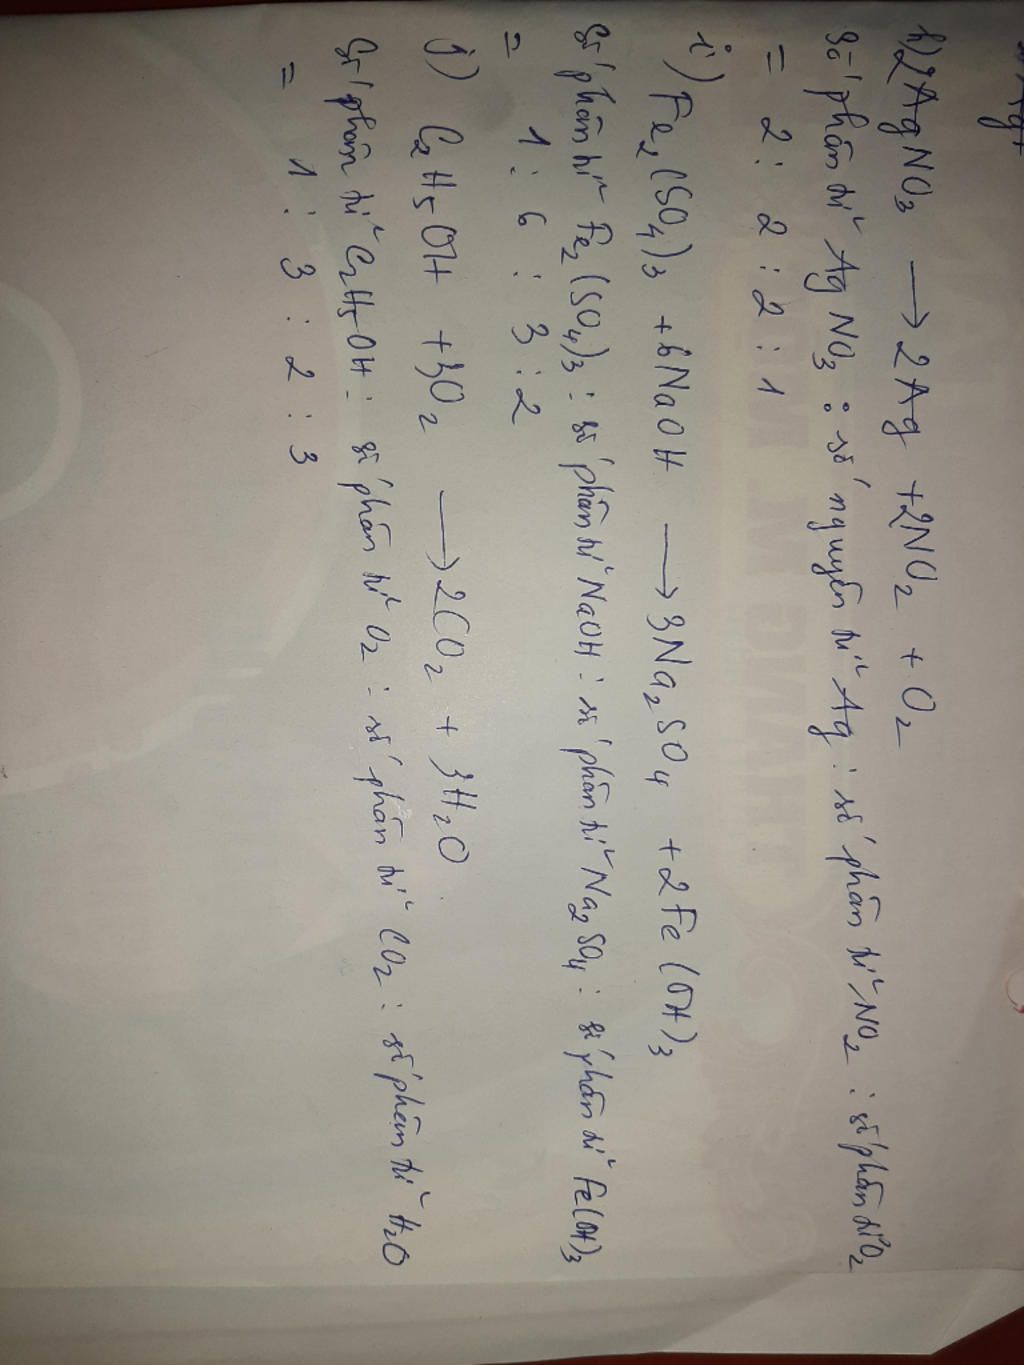 h) 2AgNO3 → 2Ag + 2NO2 + O2
Số phân tử AgNO3 : số nguyên tử Ag : số phân tử NO2 : số phân tử O2
= 2 : 2 : 2 : 1
i) Fe2(SO4)3 + 6NaOH → 3Na2SO4 + 2Fe(OH)3
Số phân tử Fe2(SO4)3 : số phân tử NaOH : số phân tử Na2SO4 : số phân tử Fe(OH)3
= 1 : 6 : 3 : 2
j) C2H5OH + 3O2 → 2CO2 + 3H2O
Số phân tử C2H5OH : số phân tử O2 : số phân tử CO2 : số phân tử H2O
= 1 : 3 : 2 : 3